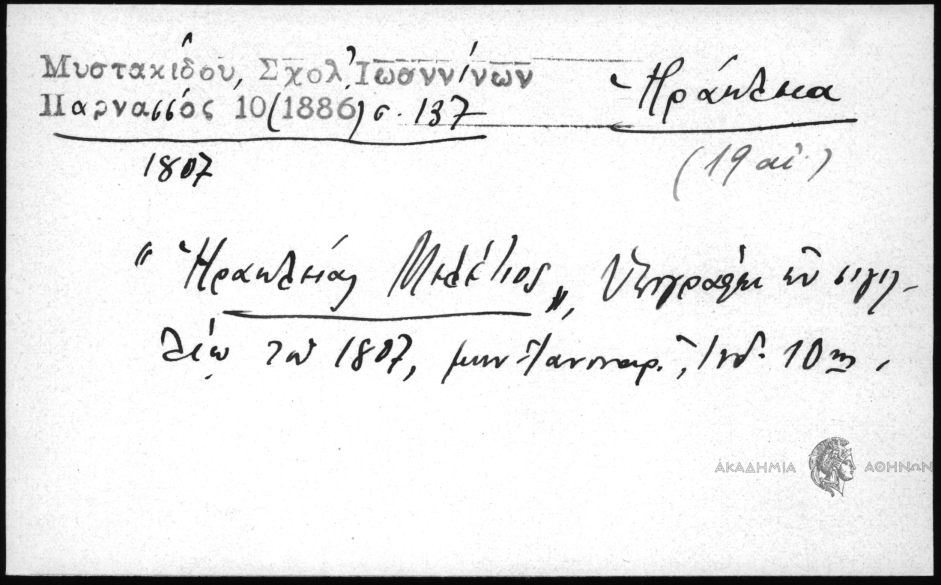 Μυστακίδου, Σχολ. Ἰωαννίνων
Παρνασσός 10(1886) σ. 137
Ἡράκλεια
(19 αἰ.)
1807
"Ἡρακλείας Μελέτιος", Ὑπογράφει ἐν σιγιλ-
λίῳ τοῦ 1807, μην. Ἰανουαρ., Ἰνδ. 10ης.
ΑΚΑΔΗΜΙΑ ΑΘΗΝΩΝ